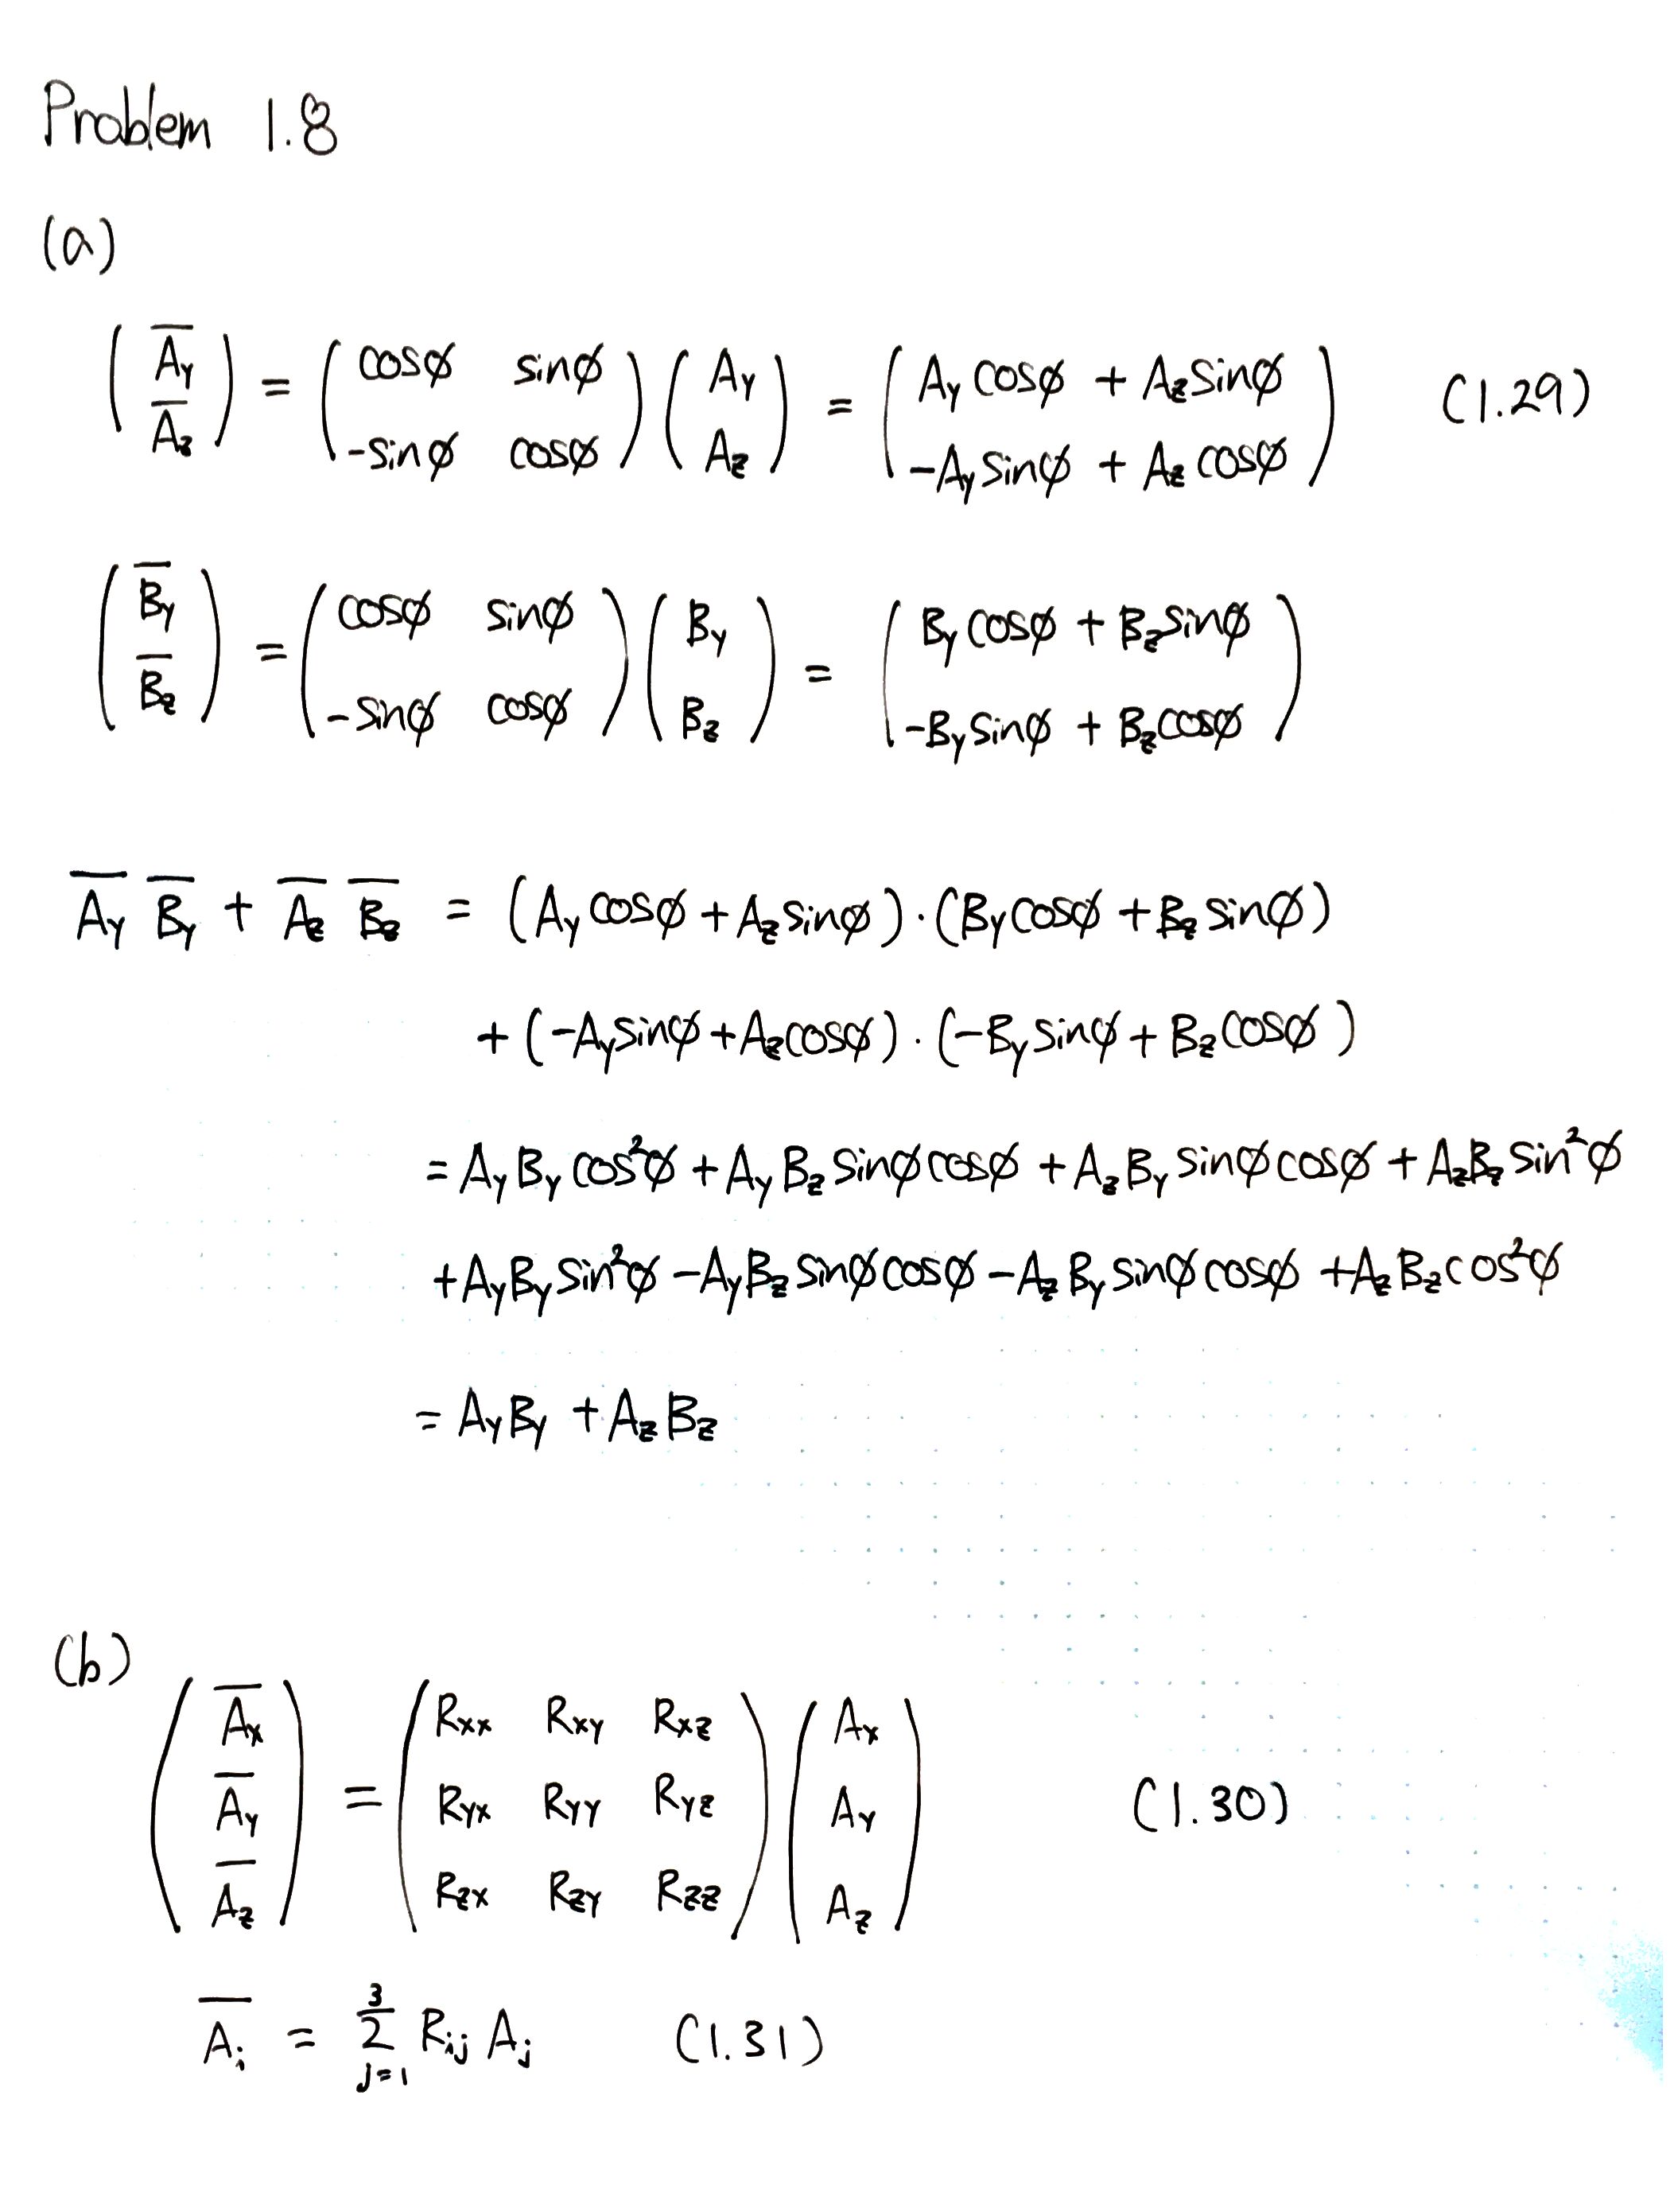 Problem 1.8
(a)
( A̅y A̅z ) = ( cosø sinø -sinø cosø ) ( Ay Az ) = ( Ay cosø + Az sinø -Ay sinø + Az cosø ) (1.29)
( B̅y B̅z ) = ( cosø sinø -sinø cosø ) ( By Bz ) = ( By cosø + Bz sinø -By sinø + Bz cosø )
A̅y B̅y + A̅z B̅z = (Ay cosø + Az sinø) · (By cosø + Bz sinø)
+ (-Ay sinø + Az cosø) · (-By sinø + Bz cosø)
= Ay By cos²ø + Ay Bz sinø cosø + Az By sinø cosø + Az Bz sin²ø
+ Ay By sin²ø - Ay Bz sinø cosø - Az By sinø cosø + Az Bz cos²ø
= Ay By + Az Bz
(b)
( A̅x A̅y A̅z ) = ( Rxx Rxy Rxz Ryx Ryy Ryz Rzx Rzy Rzz ) ( Ax Ay Az ) (1.30)
A̅i = Σ_{j=1}^{3} Rij Aj (1.31)